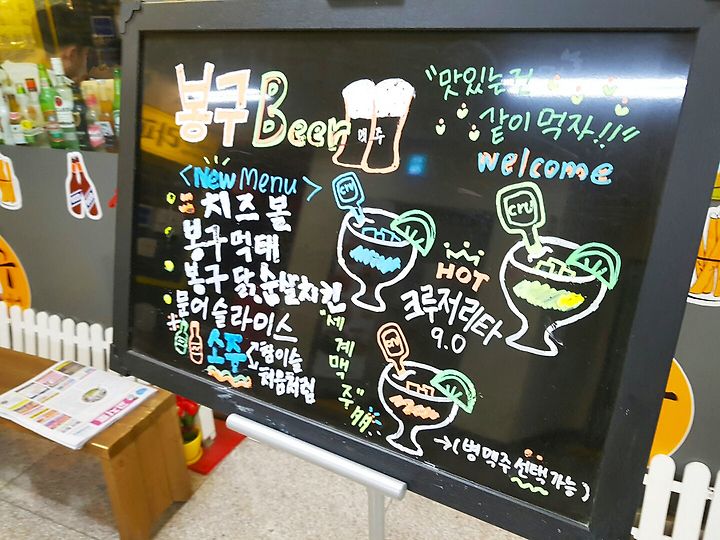 봉구 Beer
맥주
"맛있는건
같이먹자!!"
welcome
<New Menu>
치즈볼
봉구먹태
봉구 닭순살치킨
문어슬라이스
소주 참이슬
처음처럼
세계맥주
cru
cru
cru
HOT
크루저리타
9.0
→(병맥주 선택가능)